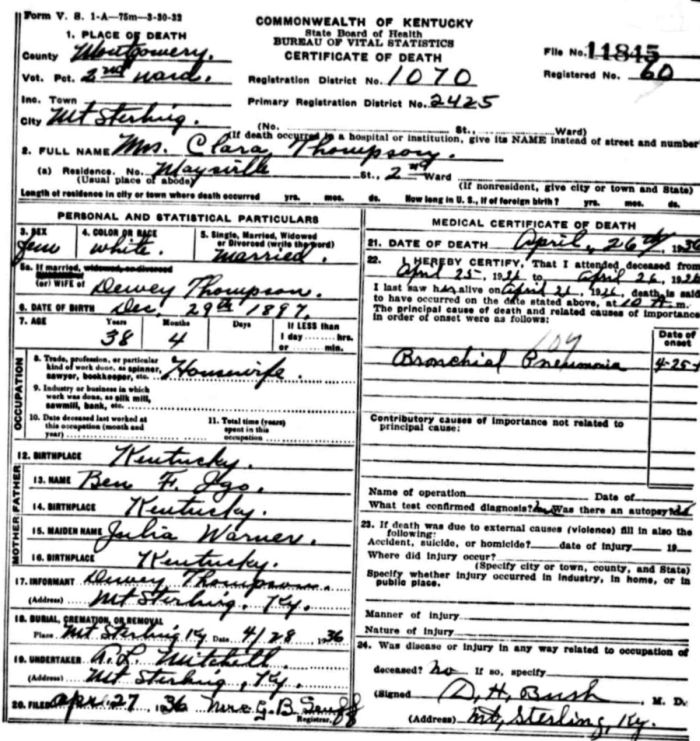 Form V. S. 1-A—75m—3-30-32
COMMONWEALTH OF KENTUCKY
State Board of Health
BUREAU OF VITAL STATISTICS
CERTIFICATE OF DEATH
File No. 11845
Registered No. 60
Registration District No. 1070
Primary Registration District No. 2425
1. PLACE OF DEATH
County Montgomery.
Vot. Pct. 2nd ward.
Inc. Town
City Mt Sterling. (No. St., Ward)
(If death occurred in a hospital or institution, give its NAME instead of street and number
2. FULL NAME Mrs. Clara Thompson.
(a) Residence. No. Maysville St., 2nd Ward
(Usual place of abode)
(If nonresident, give city or town and State)
Length of residence in city or town where death occurred yrs. mos. ds. How long in U. S., if of foreign birth? yrs. mos. ds.
PERSONAL AND STATISTICAL PARTICULARS
3. SEX
Fem
4. COLOR OR RACE
white.
5. Single, Married, Widowed
or Divorced (write the word)
married.
5a. If married, widowed, or divorced
(or) WIFE of Dewey Thompson.
6. DATE OF BIRTH Dec. 29th 1897.
7. AGE Years Months Days If LESS than
1 day hrs.
or min.
38 4
OCCUPATION
8. Trade, profession, or particular
kind of work done, as spinner,
sawyer, bookkeeper, etc. Housewife.
9. Industry or business in which
work was done, as silk mill,
sawmill, bank, etc.
10. Date deceased last worked at
this occupation (month and
year)
11. Total time (years)
spent in this
occupation
12. BIRTHPLACE Kentucky.
FATHER
13. NAME Ben F. Igo.
14. BIRTHPLACE Kentucky.
MOTHER
15. MAIDEN NAME Julia Warner.
16. BIRTHPLACE Kentucky.
17. INFORMANT Dewey Thompson
(Address) Mt Sterling, Ky.
18. BURIAL, CREMATION, OR REMOVAL
Place Mt Sterling Ky Date 4/28 1936
19. UNDERTAKER R. L. Mitchell
(Address) Mt Sterling, Ky.
20. FILED Apr. 27 1936 Mrs G. B.
Registrar.
MEDICAL CERTIFICATE OF DEATH
21. DATE OF DEATH April, 26th, 1936
22. I HEREBY CERTIFY, That I attended deceased from
April 25, 1936 to April 26, 1936
I last saw her alive on April 26, 1936, death is said
to have occurred on the date stated above, at 10 m.
The principal cause of death and related causes of importance
in order of onset were as follows:
Date of
onset
107
Bronchial Pneumonia 4-25-
Contributory causes of importance not related to
principal cause:
Name of operation Date of
What test confirmed diagnosis? Was there an autopsy?
23. If death was due to external causes (violence) fill in also the
following:
Accident, suicide, or homicide? date of injury 19
Where did injury occur?
(Specify city or town, county, and State)
Specify whether injury occurred in industry, in home, or in
public place.
Manner of injury
Nature of injury
24. Was disease or injury in any way related to occupation of
deceased? No If so, specify
(Signed D. H. Bush M. D.
(Address) Mt, Sterling, Ky.